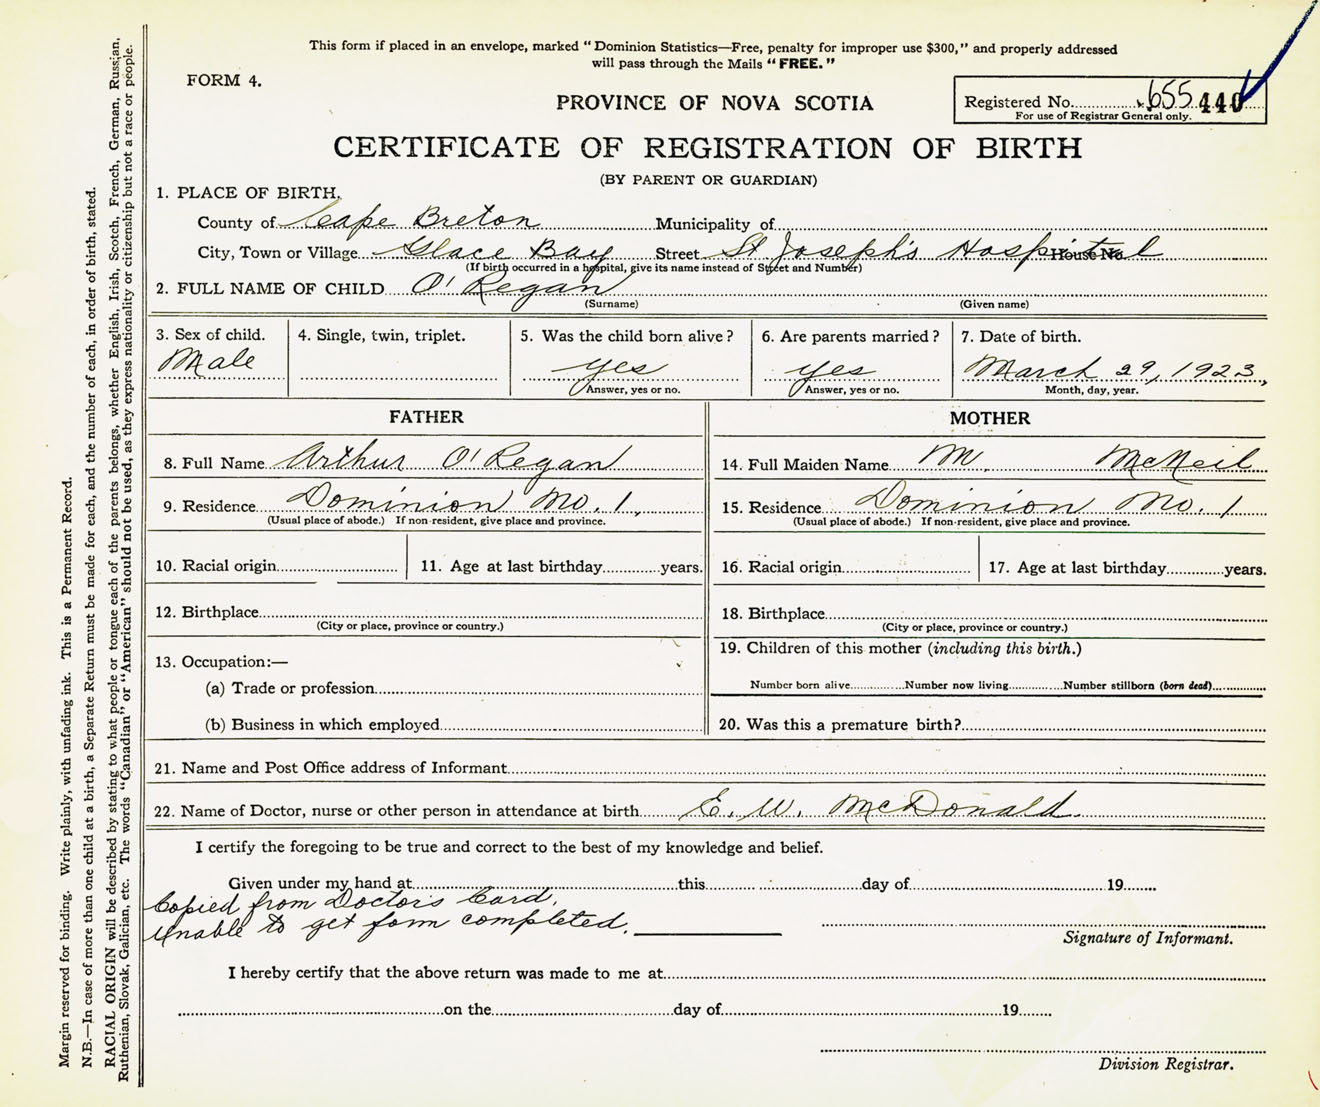 This form if placed in an envelope, marked "Dominion Statistics—Free, penalty for improper use $300," and properly addressed
will pass through the Mails "FREE."
FORM 4.
PROVINCE OF NOVA SCOTIA
Registered No. 655 440
For use of Registrar General only.
CERTIFICATE OF REGISTRATION OF BIRTH
(BY PARENT OR GUARDIAN)
1. PLACE OF BIRTH.
County of Cape Breton Municipality of
City, Town or Village Glace Bay Street St. Joseph's Hospital House No
(If birth occurred in a hospital, give its name instead of Street and Number)
2. FULL NAME OF CHILD O'Regan
(Surname) (Given name)
3. Sex of child. 4. Single, twin, triplet. 5. Was the child born alive? 6. Are parents married? 7. Date of birth.
Male yes yes March 29, 1923,
Answer, yes or no. Answer, yes or no. Month, day, year.
FATHER MOTHER
8. Full Name Arthur O'Regan 14. Full Maiden Name M. McNeil
9. Residence Dominion No. 1. 15. Residence Dominion No. 1
(Usual place of abode.) If non-resident, give place and province. (Usual place of abode.) If non-resident, give place and province.
10. Racial origin 11. Age at last birthday years. 16. Racial origin 17. Age at last birthday years.
12. Birthplace 18. Birthplace
(City or place, province or country.) (City or place, province or country.)
13. Occupation:— 19. Children of this mother (including this birth.)
(a) Trade or profession Number born alive Number now living Number stillborn (born dead)
(b) Business in which employed 20. Was this a premature birth?
21. Name and Post Office address of Informant
22. Name of Doctor, nurse or other person in attendance at birth E. W. McDonald.
I certify the foregoing to be true and correct to the best of my knowledge and belief.
Given under my hand at this day of 19
Copied from Doctor's Card.
Unable to get form completed.
Signature of Informant.
I hereby certify that the above return was made to me at
on the day of 19
Division Registrar.
Margin reserved for binding. Write plainly, with unfading ink. This is a Permanent Record.
N.B.—In case of more than one child at a birth, a Separate Return must be made for each, and the number of each, in order of birth, stated.
RACIAL ORIGIN will be described by stating to what people or tongue each of the parents belongs, whether English, Irish, Scotch, French, German, Russian,
Ruthenian, Slovak, Galician, etc. The words "Canadian" or "American" should not be used, as they express nationality or citizenship but not a race or people.